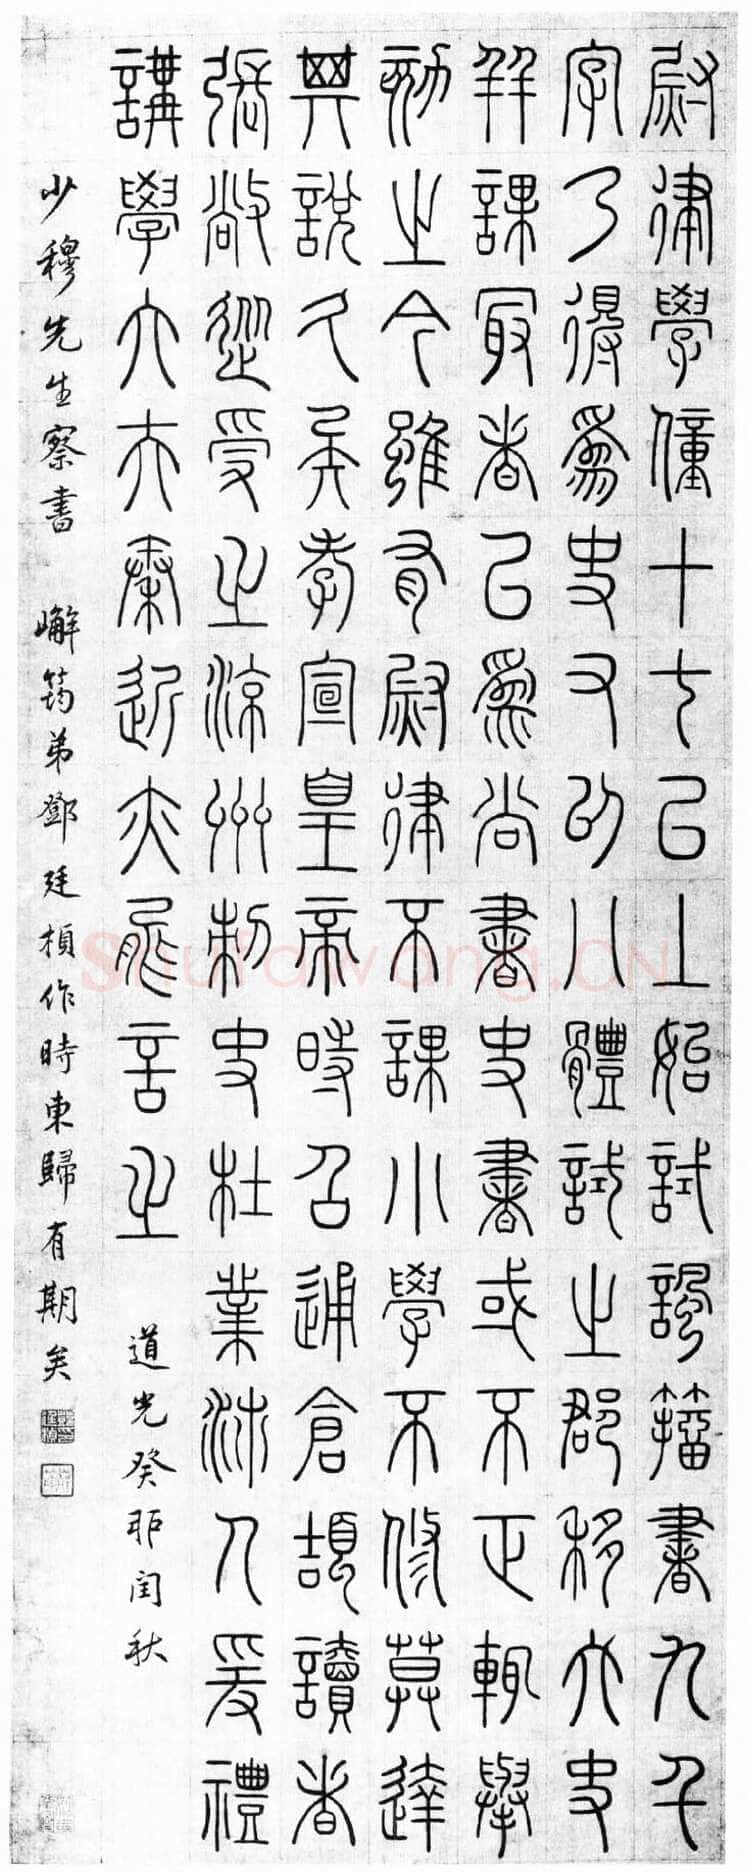 尉律學僮十七以上始試諷籀書九千
字乃得為史又以八體試之郡移太史
并課冣者以為尚書史書或不正輒舉
劾之今雖有尉律不課小學不修莫達
其說久矣孝宣皇帝時召通倉頡讀者
張敞從受之涼州刺史杜業沛人爰禮
講學大夫秦近亦能言之 道光癸卯閏秋
少穆先生察書 嶰筠弟鄧廷楨作時東歸有期矣
Shufawang.CN